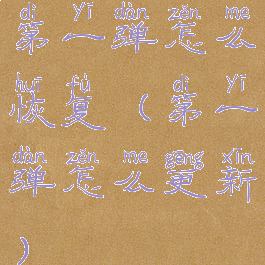 dì yī dàn zěn me
第一弹怎么
huī fù ( dì yī
恢复（第一
dàn zěn me gēng xīn
弹怎么更新
）